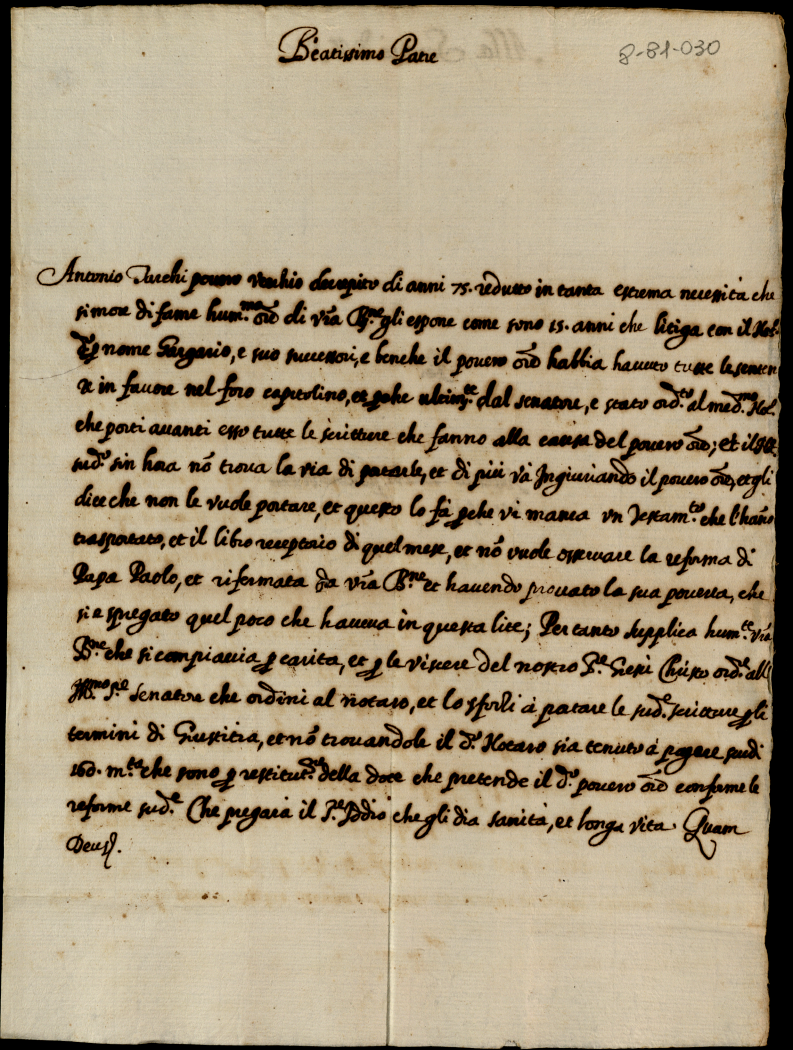 Beatissimo Patre
8-81-030
Antonio povero vechio decrepito di anni 75. redutto in tanta estrema necessità che
si more di fame hum.mo ōre di vrā B.ne gli espone come sono 15. anni che litiga con il Not.
nome Gargario, e suo successori, e benche il povero ōre habbia havuto tutte le senten
ze in favore nel foro capitolino, et ꝑche ultim.te dal senatore, e stato ord.to al med.mo Not.
che porti avanti esso tutte le scritture che fanno alla causa del povero ōre; et il
sud.o sin hora nō trova la via di portarle, et di più và Ingiuriando il povero ōre, et gli
dice che non le vuole portare, et questo lo fà ꝑche vi manca un Testam.to che l'hāno
trasportato, et il libro receptaio di quel mese, et nō vuole osservare la reforma di
Papa Paolo, et rifermata da vrā B.ne et havendo provato la sua poverta, che
si e spregato quel poco che haveva in questa lite; Per tanto supplica hum.te vrā
B.ne che si compiacia ꝑ carita, et ꝑ le viscere del nostro S.re Giesù Christo ord.e all
Ill.mo S.re Senatore che ordini al notaro, et lo sforzi à portare le sud.e scritture ꝑ li
termini di Giustitia, et nō trovandole il d.o Notaro sia tenuto à pagare scudi
160. m.ta che sono ꝑ restitut.ne della dote che pretende il d.o povero ōre conforme le
reforme sud.e Che pregarà il S.re Iddio che gli dia sanità, et longa vita. Quam
Deus.